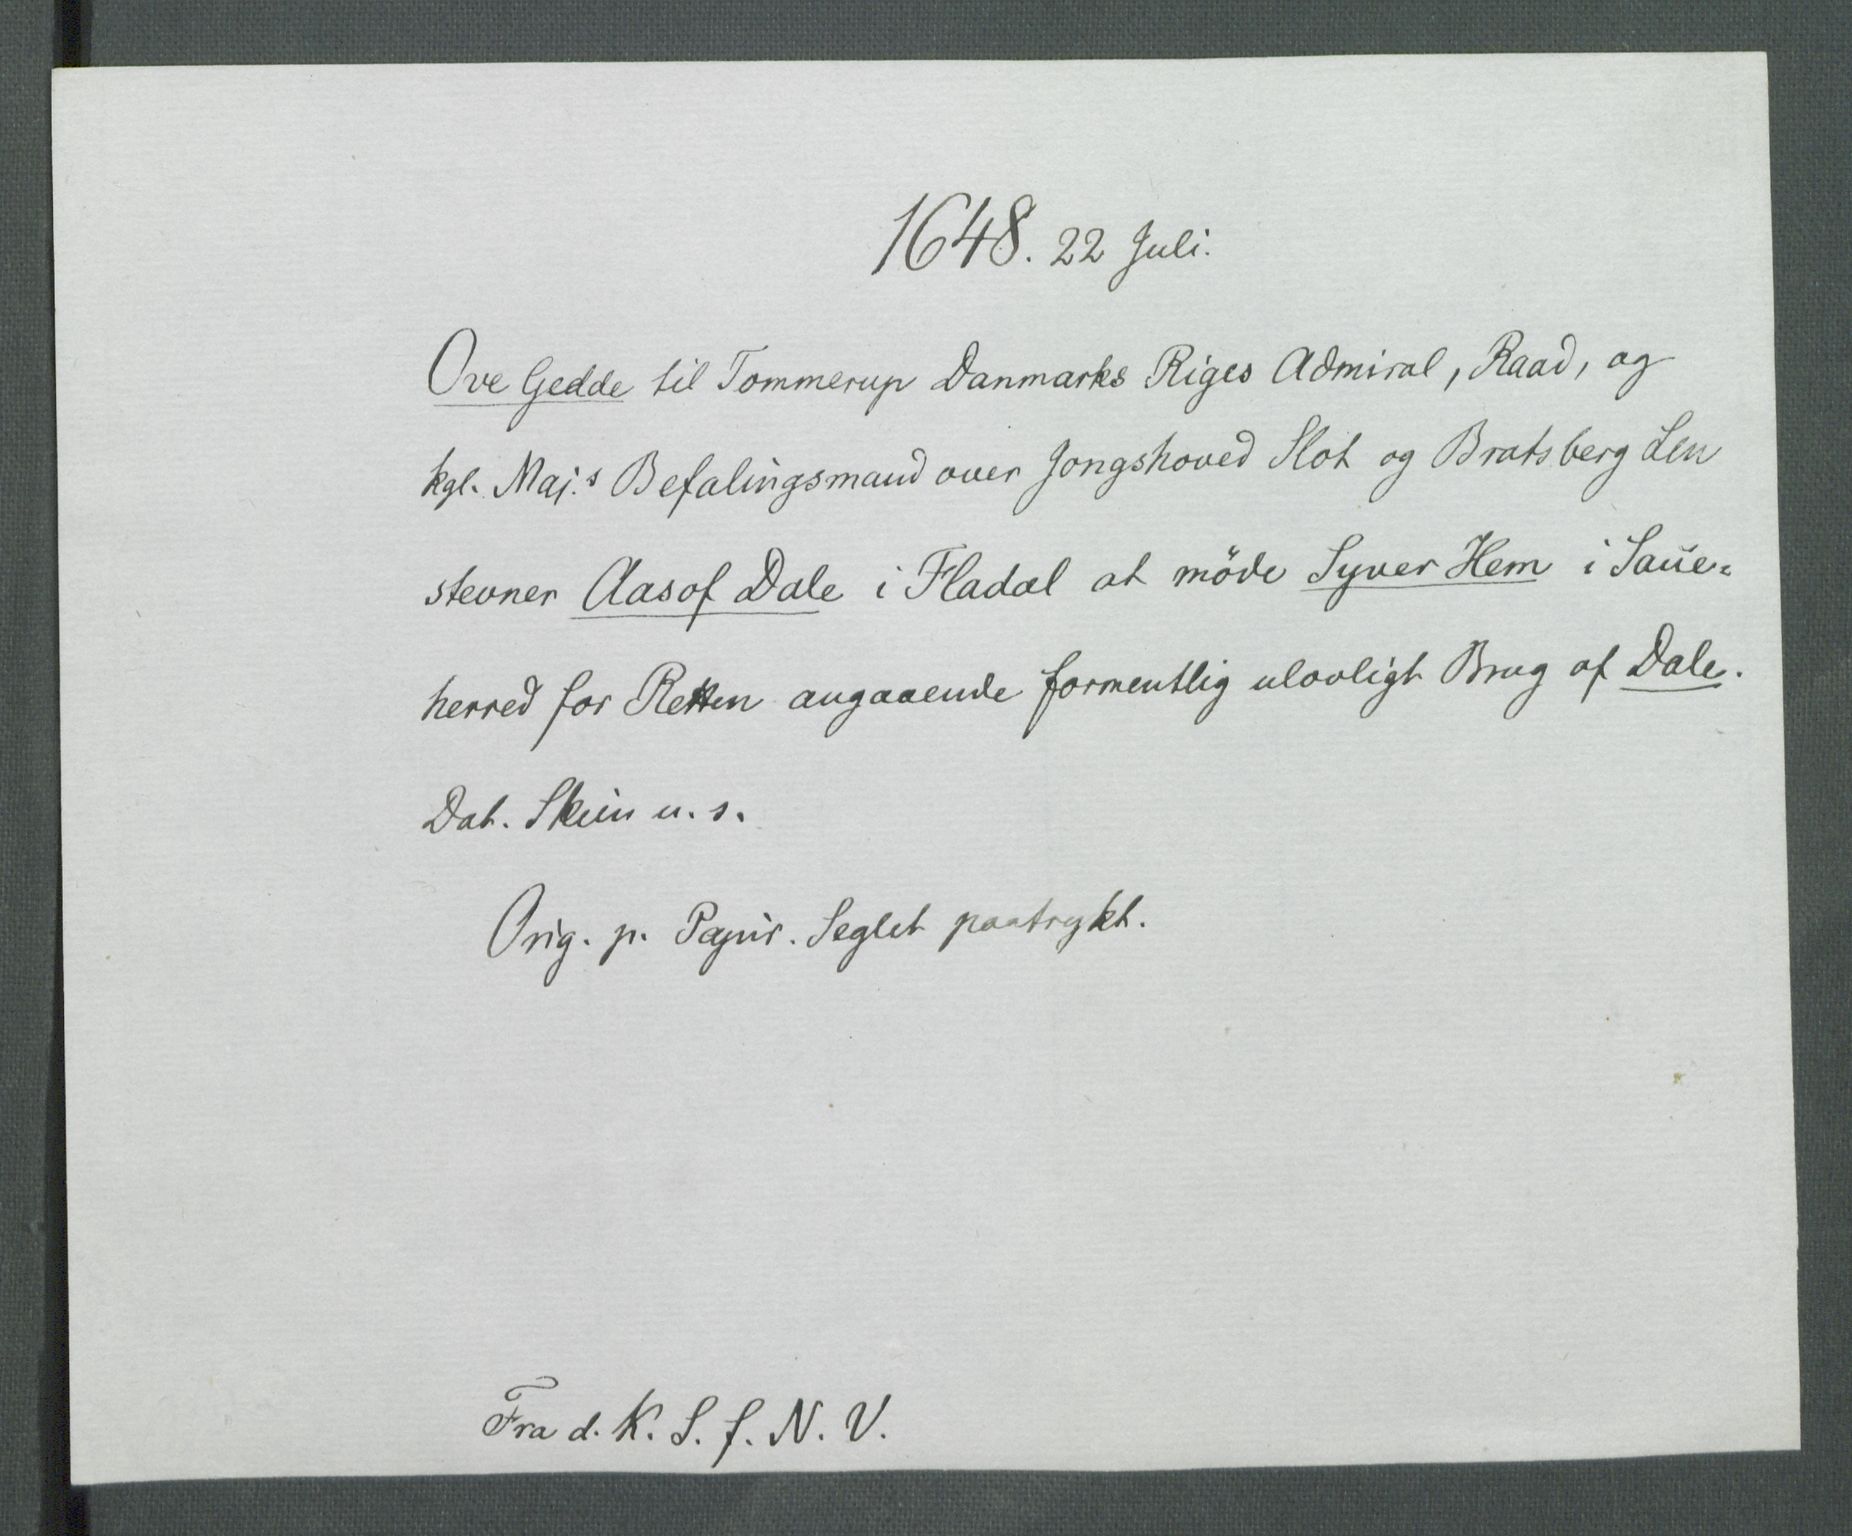 1648. 22 Juli.
Ove Gedde til Tommerup Danmarks Riges Admiral, Raad, og
kgl. Maj.s Befalingsmand over Jongshoved Slot og Bratsberg Len
stevner Aasof Dale i Fladal at möde Syver Hem i Saŭe=
herred for Retten angaaende formentlig ulovligt Brug af Dale.
Dat. Skien u. s.
Orig. p. Papir. Seglet paatrykt.
Fra d. K. S. f. N. V.